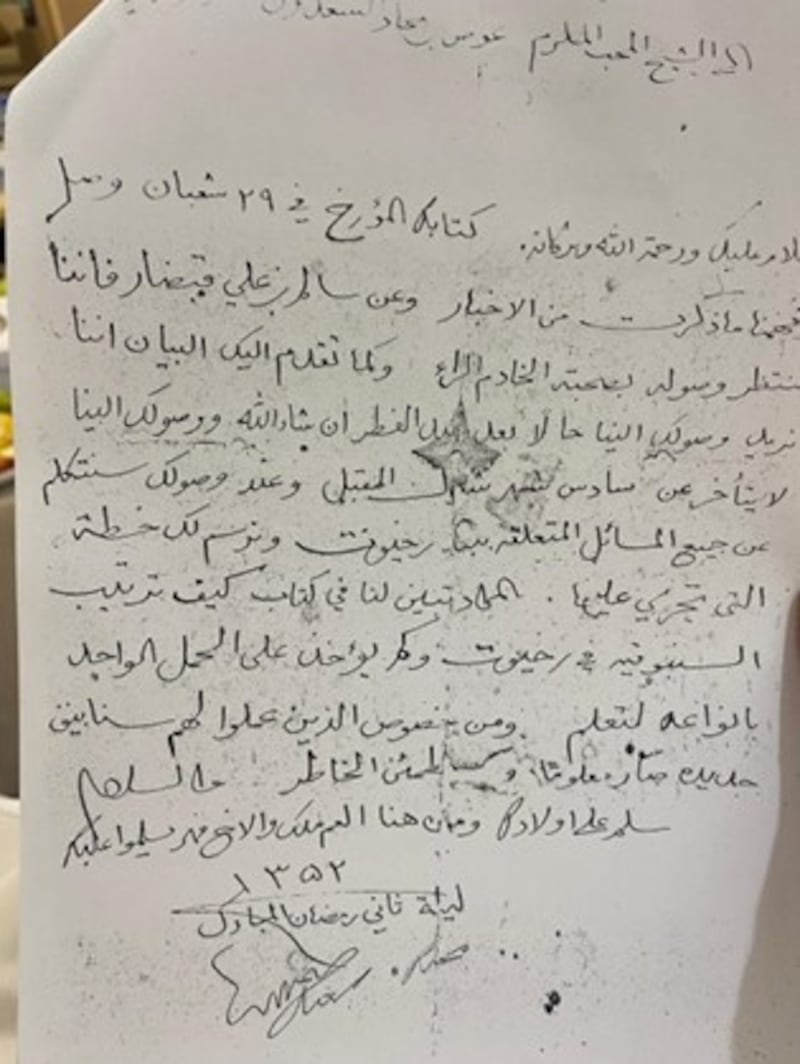 الى الشيخ المحب المكرم عوض بن
السلام عليك ورحمة الله وبركاته. كتابك المؤرخ في ٢٩ شعبان وصل
فهمنا ما ذكرت من الاخبار وعن سالم بن علي قبضار فاننا
منتظر وصوله بصحبة الخادم وكما تقدم اليك البيان اننا
نريد وصولك الينا حالا بعد عيد الفطر ان شاء الله ووصولك الينا
لا يتأخر عن سادس شهر شوال المقبل وعند وصولك سنتكلم
عن جميع المسائل المتعلقه رخيوت ونرسم لك خطة
التى تجري عليها . المراد تبين لنا في كتاب كيف ترتيب
السنبوقيه في رخيوت وكم يؤخذ على الحمل الواحد
بانواعه لنعلم ومن خصوص الذين عملوا لهم سنابيق
جديده صار معلومنا وكن مطمئن الخاطر والسلام
سلم على اولادك ومن هنا العم ملك والاخ يسلموا عليك
١٣٥٢
ليلة ثاني رمضان المبارك